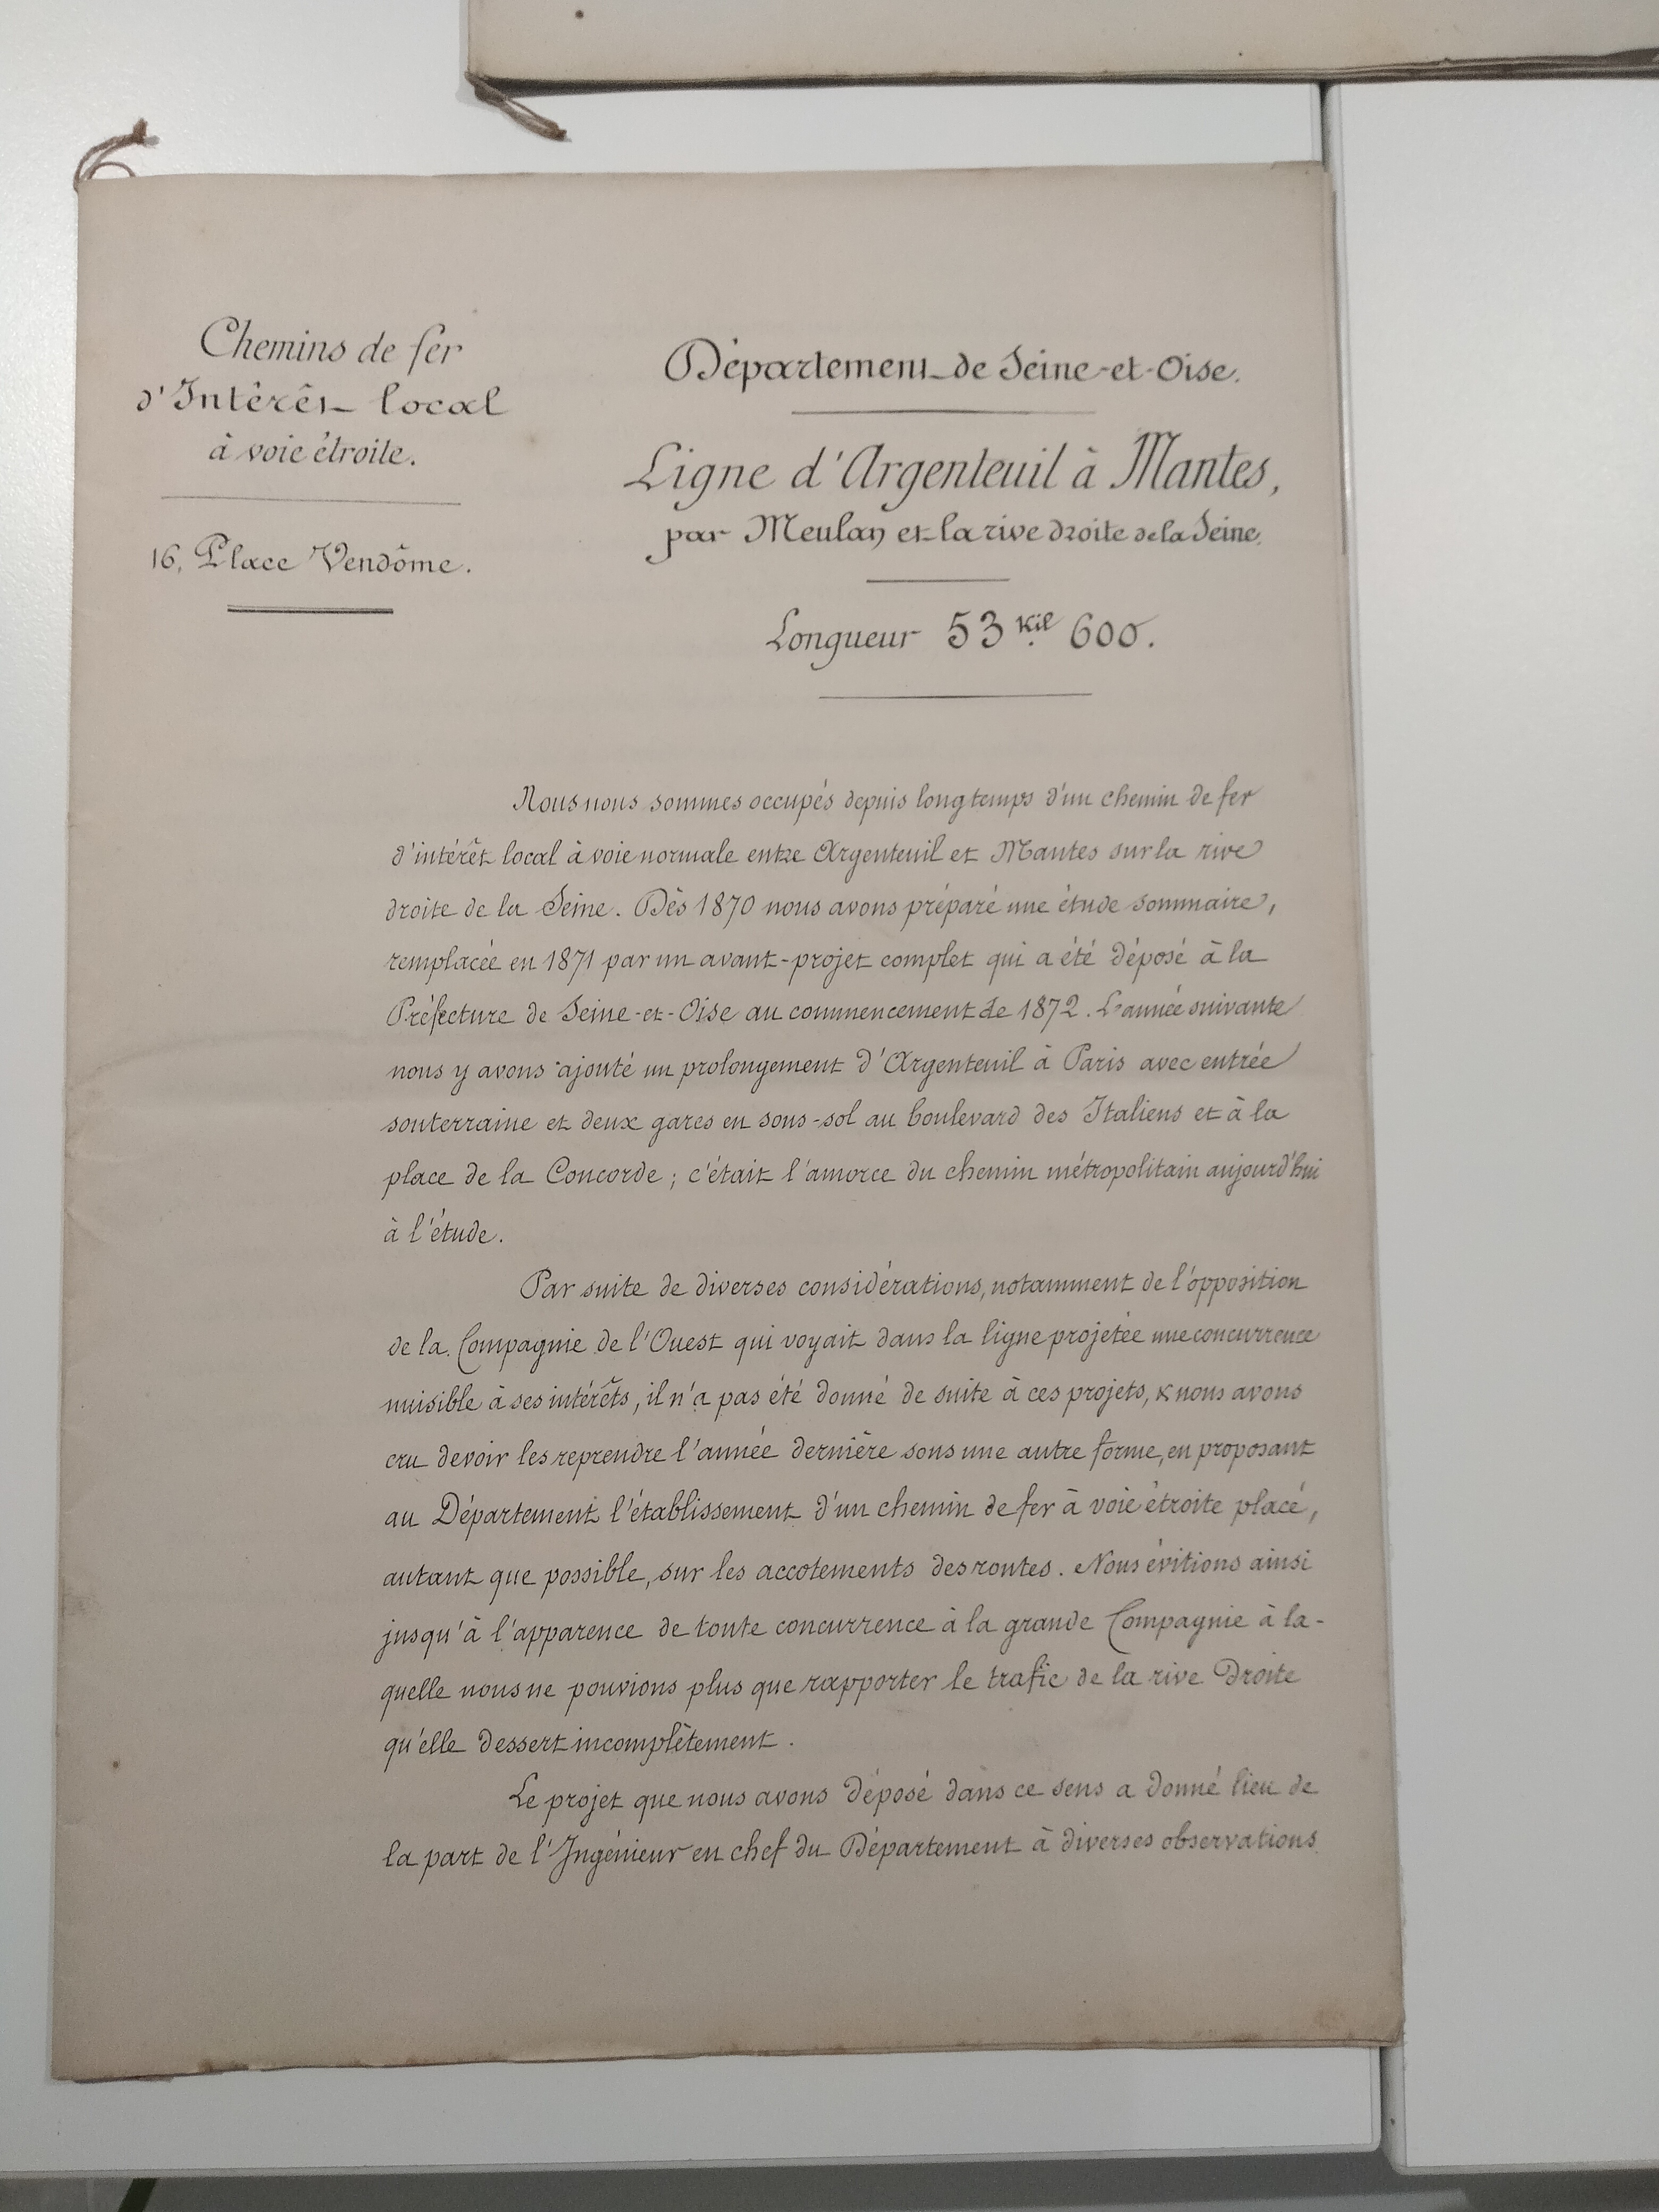 Chemins de fer
d'Intérêt local
à voie étroite.
16, Place Vendôme.
Département de Seine-et-Oise.
Ligne d'Argenteuil à Mantes,
par Meulan et la rive droite de la Seine.
Longueur 53 Kil. 600.
Nous nous sommes occupés depuis longtemps d'un chemin de fer
d'intérêt local à voie normale entre Argenteuil et Mantes sur la rive
droite de la Seine. Dès 1870 nous avons préparé une étude sommaire,
remplacée en 1871 par un avant-projet complet qui a été déposé à la
Préfecture de Seine-et-Oise au commencement de 1872. L'année suivante
nous y avons ajouté un prolongement d'Argenteuil à Paris avec entrée
souterraine et deux gares en sous-sol au boulevard des Italiens et à la
place de la Concorde ; c'était l'amorce du chemin métropolitain aujourd'hui
à l'étude.
Par suite de diverses considérations, notamment de l'opposition
de la Compagnie de l'Ouest qui voyait dans la ligne projetée une concurrence
nuisible à ses intérêts, il n'a pas été donné de suite à ces projets, & nous avons
cru devoir les reprendre l'année dernière sous une autre forme, en proposant
au Département l'établissement d'un chemin de fer à voie étroite placé,
autant que possible, sur les accotements des routes. Nous évitions ainsi
jusqu'à l'apparence de toute concurrence à la grande Compagnie à la-
quelle nous ne pouvions plus que rapporter le trafic de la rive Droite
qu'elle dessert incomplètement.
Le projet que nous avons déposé dans ce sens a donné lieu de
la part de l'Ingénieur en chef du Département à diverses observations